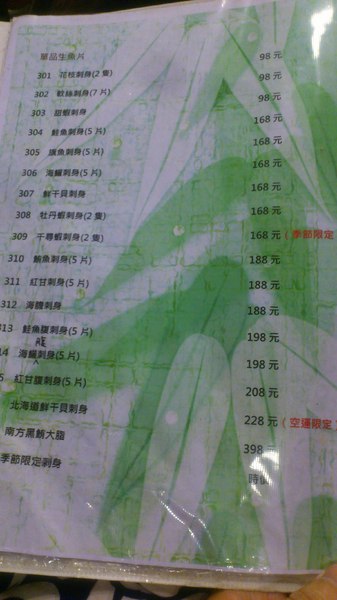 單品生魚片
301 花枝刺身(2 隻) 98 元
302 軟絲刺身(7 片) 98 元
303 甜蝦刺身 98 元
304 鮭魚刺身(5 片) 168 元
305 旗魚刺身(5 片) 168 元
306 海鱺刺身(5 片) 168 元
307 鮮干貝刺身 168 元
308 牡丹蝦刺身(2 隻) 168 元
309 千尋蝦刺身(2 隻) 168 元(季節限定
310 鮪魚刺身(5 片) 188 元
311 紅甘刺身(5 片) 188 元
312 海膽刺身 188 元
313 鮭魚腹刺身(5 片) 198 元
14 海鱺腹刺身(5 片) 198 元
5 紅甘腹刺身(5 片) 208 元
北海道鮮干貝刺身 228 元(空運限定
南方黑鮪大脂 398
季節限定刺身 時